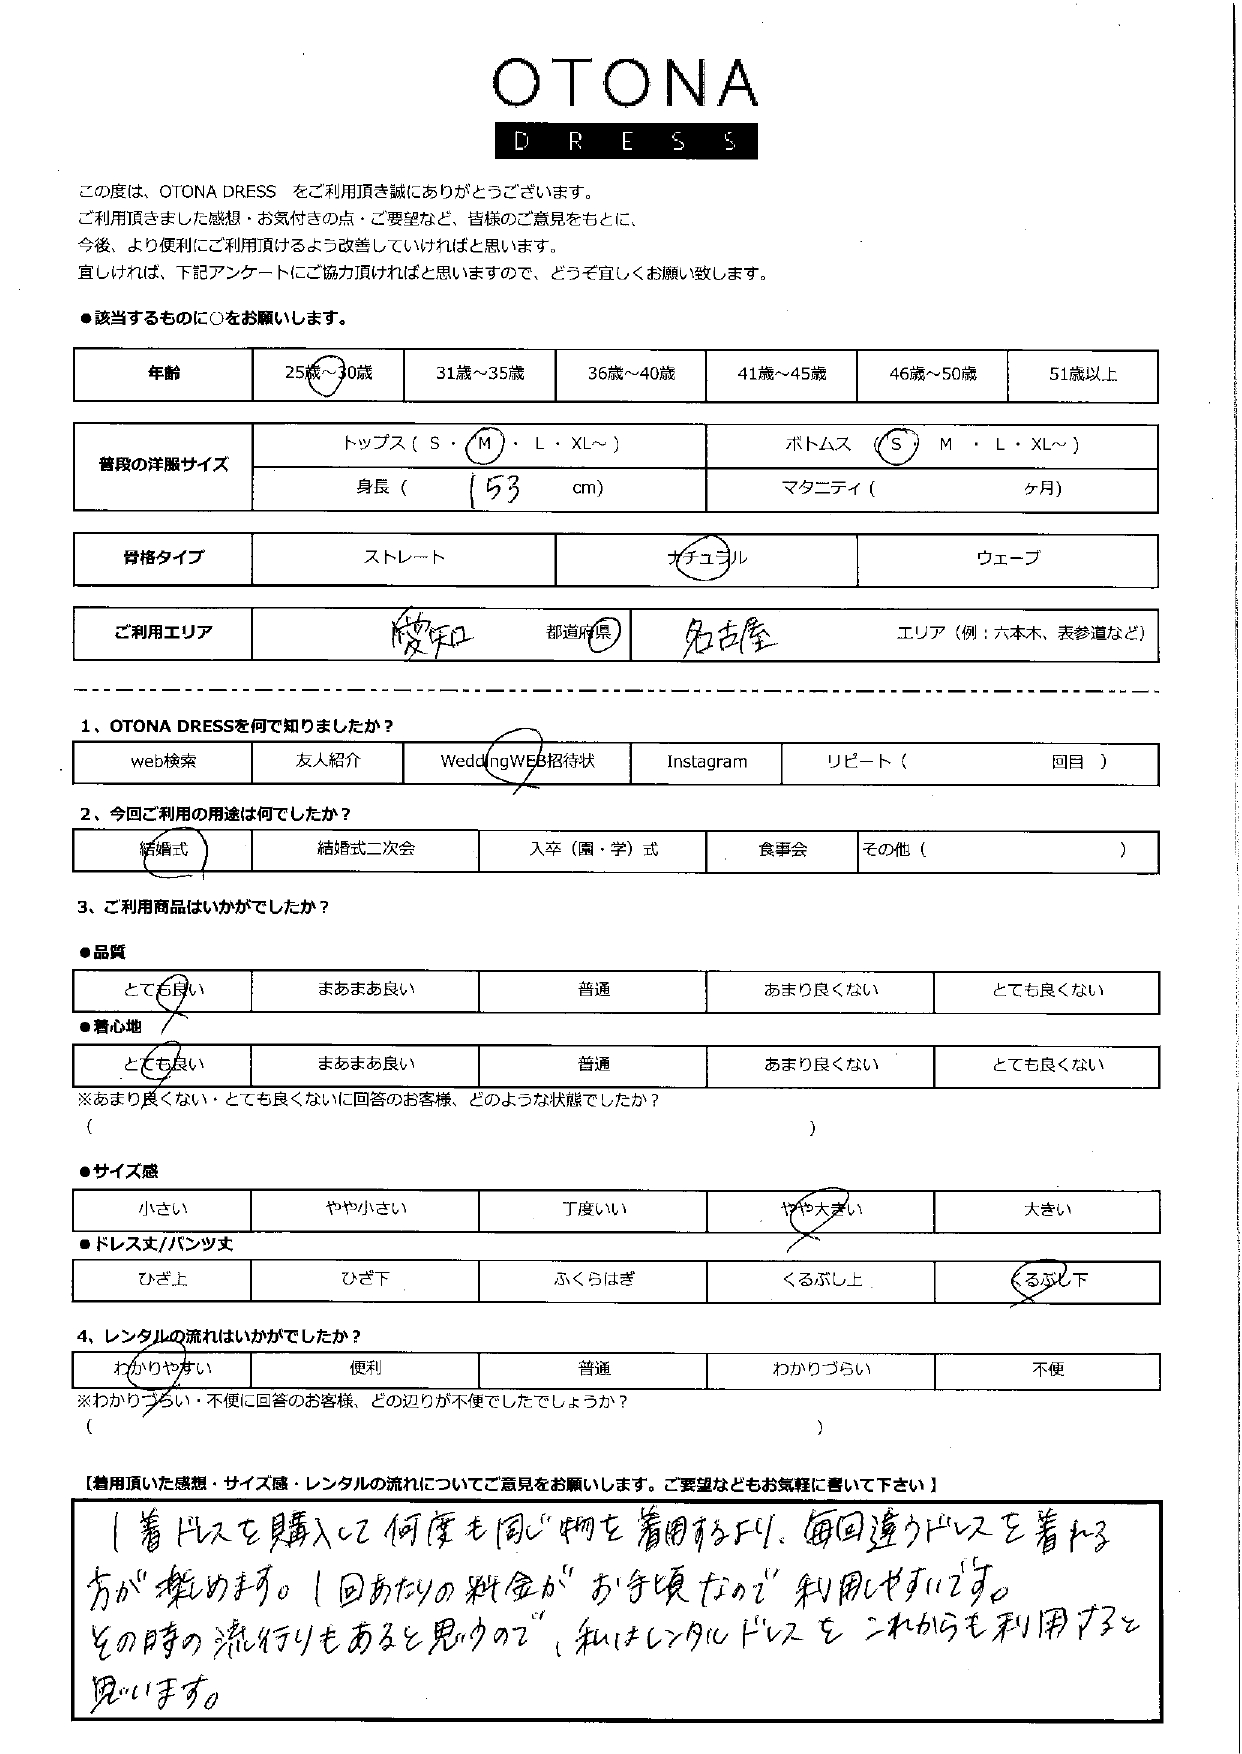 OTONA
DRESS
この度は、OTONA DRESS をご利用頂き誠にありがとうございます。
ご利用頂きました感想・お気付きの点・ご要望など、皆様のご意見をもとに、
今後、より便利にご利用頂けるよう改善していければと思います。
宜しければ、下記アンケートにご協力頂ければと思いますので、どうぞ宜しくお願い致します。
●該当するものに○をお願いします。
年齢 25歳～30歳 31歳～35歳 36歳～40歳 41歳～45歳 46歳～50歳 51歳以上
普段の洋服サイズ トップス ( S ・ M ・ L ・ XL～ ) ボトムス ( S ・ M ・ L ・ XL～ )
身長 ( 153 cm) マタニティ ( ヶ月)
骨格タイプ ストレート ナチュラル ウェーブ
ご利用エリア 愛知 都道府県 名古屋 エリア（例：六本木、表参道など）
1、OTONA DRESSを何で知りましたか？
web検索 友人紹介 WeddingWEB招待状 Instagram リピート（ 回目 ）
2、今回ご利用の用途は何でしたか？
結婚式 結婚式二次会 入卒（園・学）式 食事会 その他（ ）
3、ご利用商品はいかがでしたか？
●品質
とても良い まあまあ良い 普通 あまり良くない とても良くない
●着心地
とても良い まあまあ良い 普通 あまり良くない とても良くない
※あまり良くない・とても良くないに回答のお客様、どのような状態でしたか？
( )
●サイズ感
小さい やや小さい 丁度いい やや大きい 大きい
●ドレス丈/パンツ丈
ひざ上 ひざ下 ふくらはぎ くるぶし上 くるぶし下
4、レンタルの流れはいかがでしたか？
わかりやすい 便利 普通 わかりづらい 不便
※わかりづらい・不便に回答のお客様、どの辺りが不便でしたでしょうか？
( )
【着用頂いた感想・サイズ感・レンタルの流れについてご意見をお願いします。ご要望などもお気軽に書いて下さい】
1着ドレスを購入して何度も同じ物を着用するより、毎回違うドレスを着れる
方が楽しめます。1回あたりの料金がお手頃なので利用しやすいです。
その時の流行りもあると思うので、私はレンタルドレスをこれからも利用すると
思います。